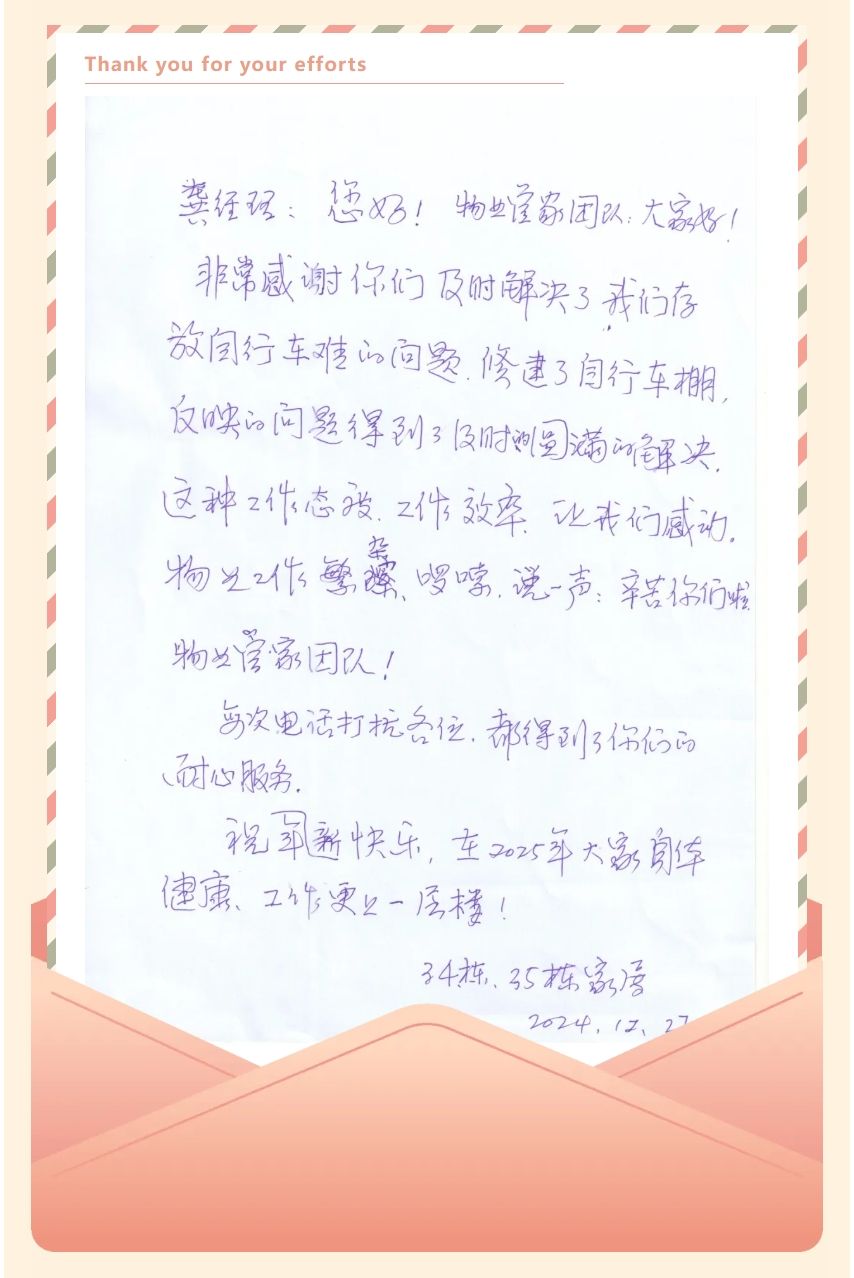 Thank you for your efforts
龚经理：您好！物业管家团队：大家好！
非常感谢你们及时解决了我们存
放自行车难的问题.修建了自行车棚,
反映的问题得到了及时的圆满的解决.
这种工作态度、工作效率、让我们感动.
物业工作繁杂、啰嗦.说一声：辛苦你们啦
物业管家团队！
每次电话打扰各位.都得到了你们的
耐心服务.
祝年新快乐,在2025年大家身体
健康、工作更上一层楼！
34栋、35栋家属
2024.12.27